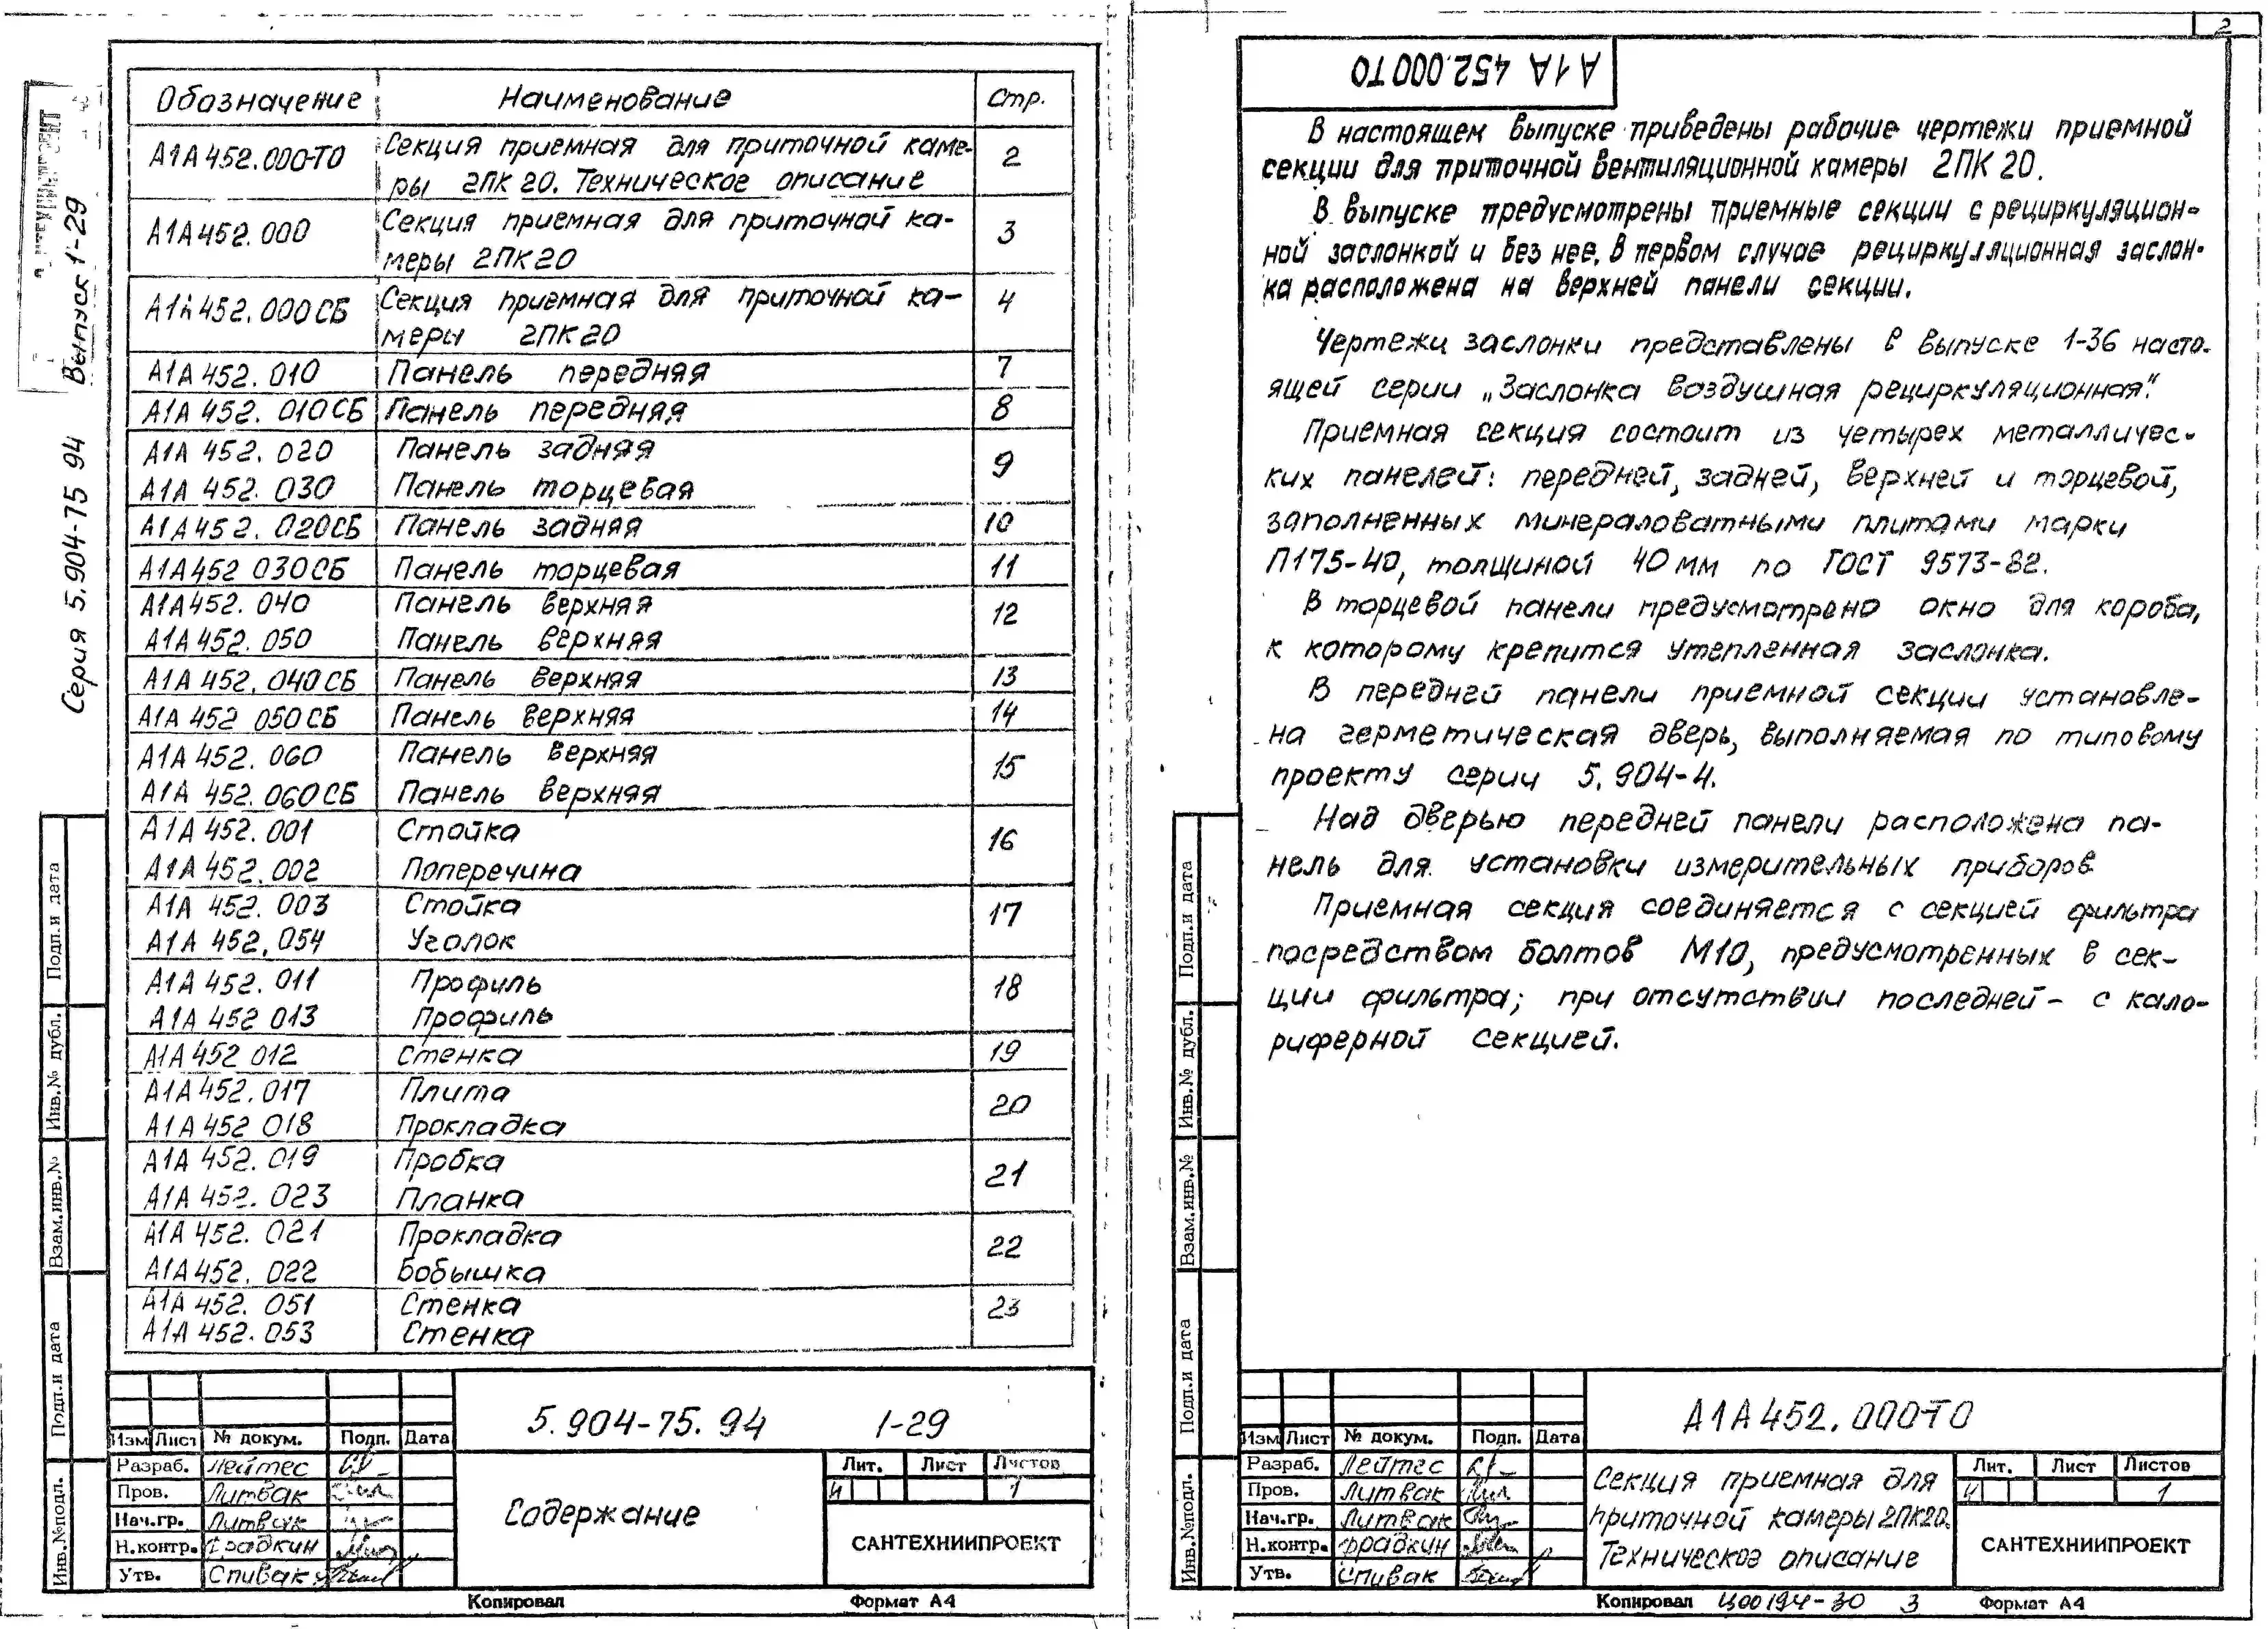 Серия 5.904-75 94 Выпуск 1-29
Обозначение Наименование Стр.
А1А452.000-ТО Секция приемная для приточной каме-
ры 2ПК 20. Техническое описание 2
А1А452.000 Секция приемная для приточной ка-
меры 2ПК20 3
А1А452.000СБ Секция приемная для приточной ка-
меры 2ПК20 4
А1А452.010 Панель передняя 7
А1А452.010СБ Панель передняя 8
А1А 452.020 Панель задняя 9
А1А 452.030 Панель торцевая
А1А452.020СБ Панель задняя 10
А1А452 030СБ Панель торцевая 11
А1А452.040 Панель верхняя 12
А1А452.050 Панель верхняя
А1А 452.040СБ Панель верхняя 13
А1А 452 050СБ Панель верхняя 14
А1А 452.060 Панель верхняя 15
А1А 452.060СБ Панель верхняя
А1А 452.001 Стойка 16
А1А 452.002 Поперечина
А1А 452.003 Стойка 17
А1А 452.054 Уголок
А1А 452.011 Профиль 18
А1А 452 013 Профиль
А1А452 012 Стенка 19
А1А 452.017 Плита 20
А1А 452 018 Прокладка
А1А 452.019 Пробка 21
А1А 452.023 Планка
А1А 452.021 Прокладка 22
А1А452.022 Бобышка
А1А 452.051 Стенка 23
А1А 452.053 Стенка
Подп.и дата
Инв.№ дубл.
Взам.инв.№
Подп.и дата
Инв.№подл.
5.904-75.94 1-29
Изм Лист № докум. Подп. Дата
Разраб. Лейтес
Пров. Литвак
Нач.гр. Литвак
Н.контр. Фрадкин
Утв. Спивак
Содержание
Лит. Лист Листов
И 1
САНТЕХНИИПРОЕКТ
Копировал Формат А4
2
А1А 452.000ТО
В настоящем выпуске приведены рабочие чертежи приемной
секции для приточной вентиляционной камеры 2ПК 20.
В выпуске предусмотрены приемные секции с рециркуляцион-
ной заслонкой и без нее. В первом случае рециркуляционная заслон-
ка расположена на верхней панели секции.
Чертежи заслонки представлены в выпуске 1-36 насто-
ящей серии „Заслонка воздушная рециркуляционная".
Приемная секция состоит из четырех металличес-
ких панелей: передней, задней, верхней и торцевой,
заполненных минераловатными плитами марки
П175-40, толщиной 40 мм по ГОСТ 9573-82.
В торцевой панели предусмотрено окно для короба,
к которому крепится утепленная заслонка.
В передней панели приемной секции установле-
на герметическая дверь, выполняемая по типовому
проекту серии 5.904-4.
Над дверью передней панели расположена па-
нель для установки измерительных приборов
Приемная секция соединяется с секцией фильтра
посредством болтов М10, предусмотренных в сек-
ции фильтра; при отсутствии последней - с кало-
риферной секцией.
Подп.и дата
Инв.№ дубл.
Взам.инв.№
Подп.и дата
Инв.№подл.
А1А452.000-ТО
Изм Лист № докум. Подп. Дата
Разраб. Лейтес
Пров. Литвак
Нач.гр. Литвак
Н.контр. Фрадкин
Утв. Спивак
Секция приемная для
приточной камеры 2ПК20.
Техническое описание
Лит. Лист Листов
И 1
САНТЕХНИИПРОЕКТ
Копировал Ц00194-30 3 Формат А4